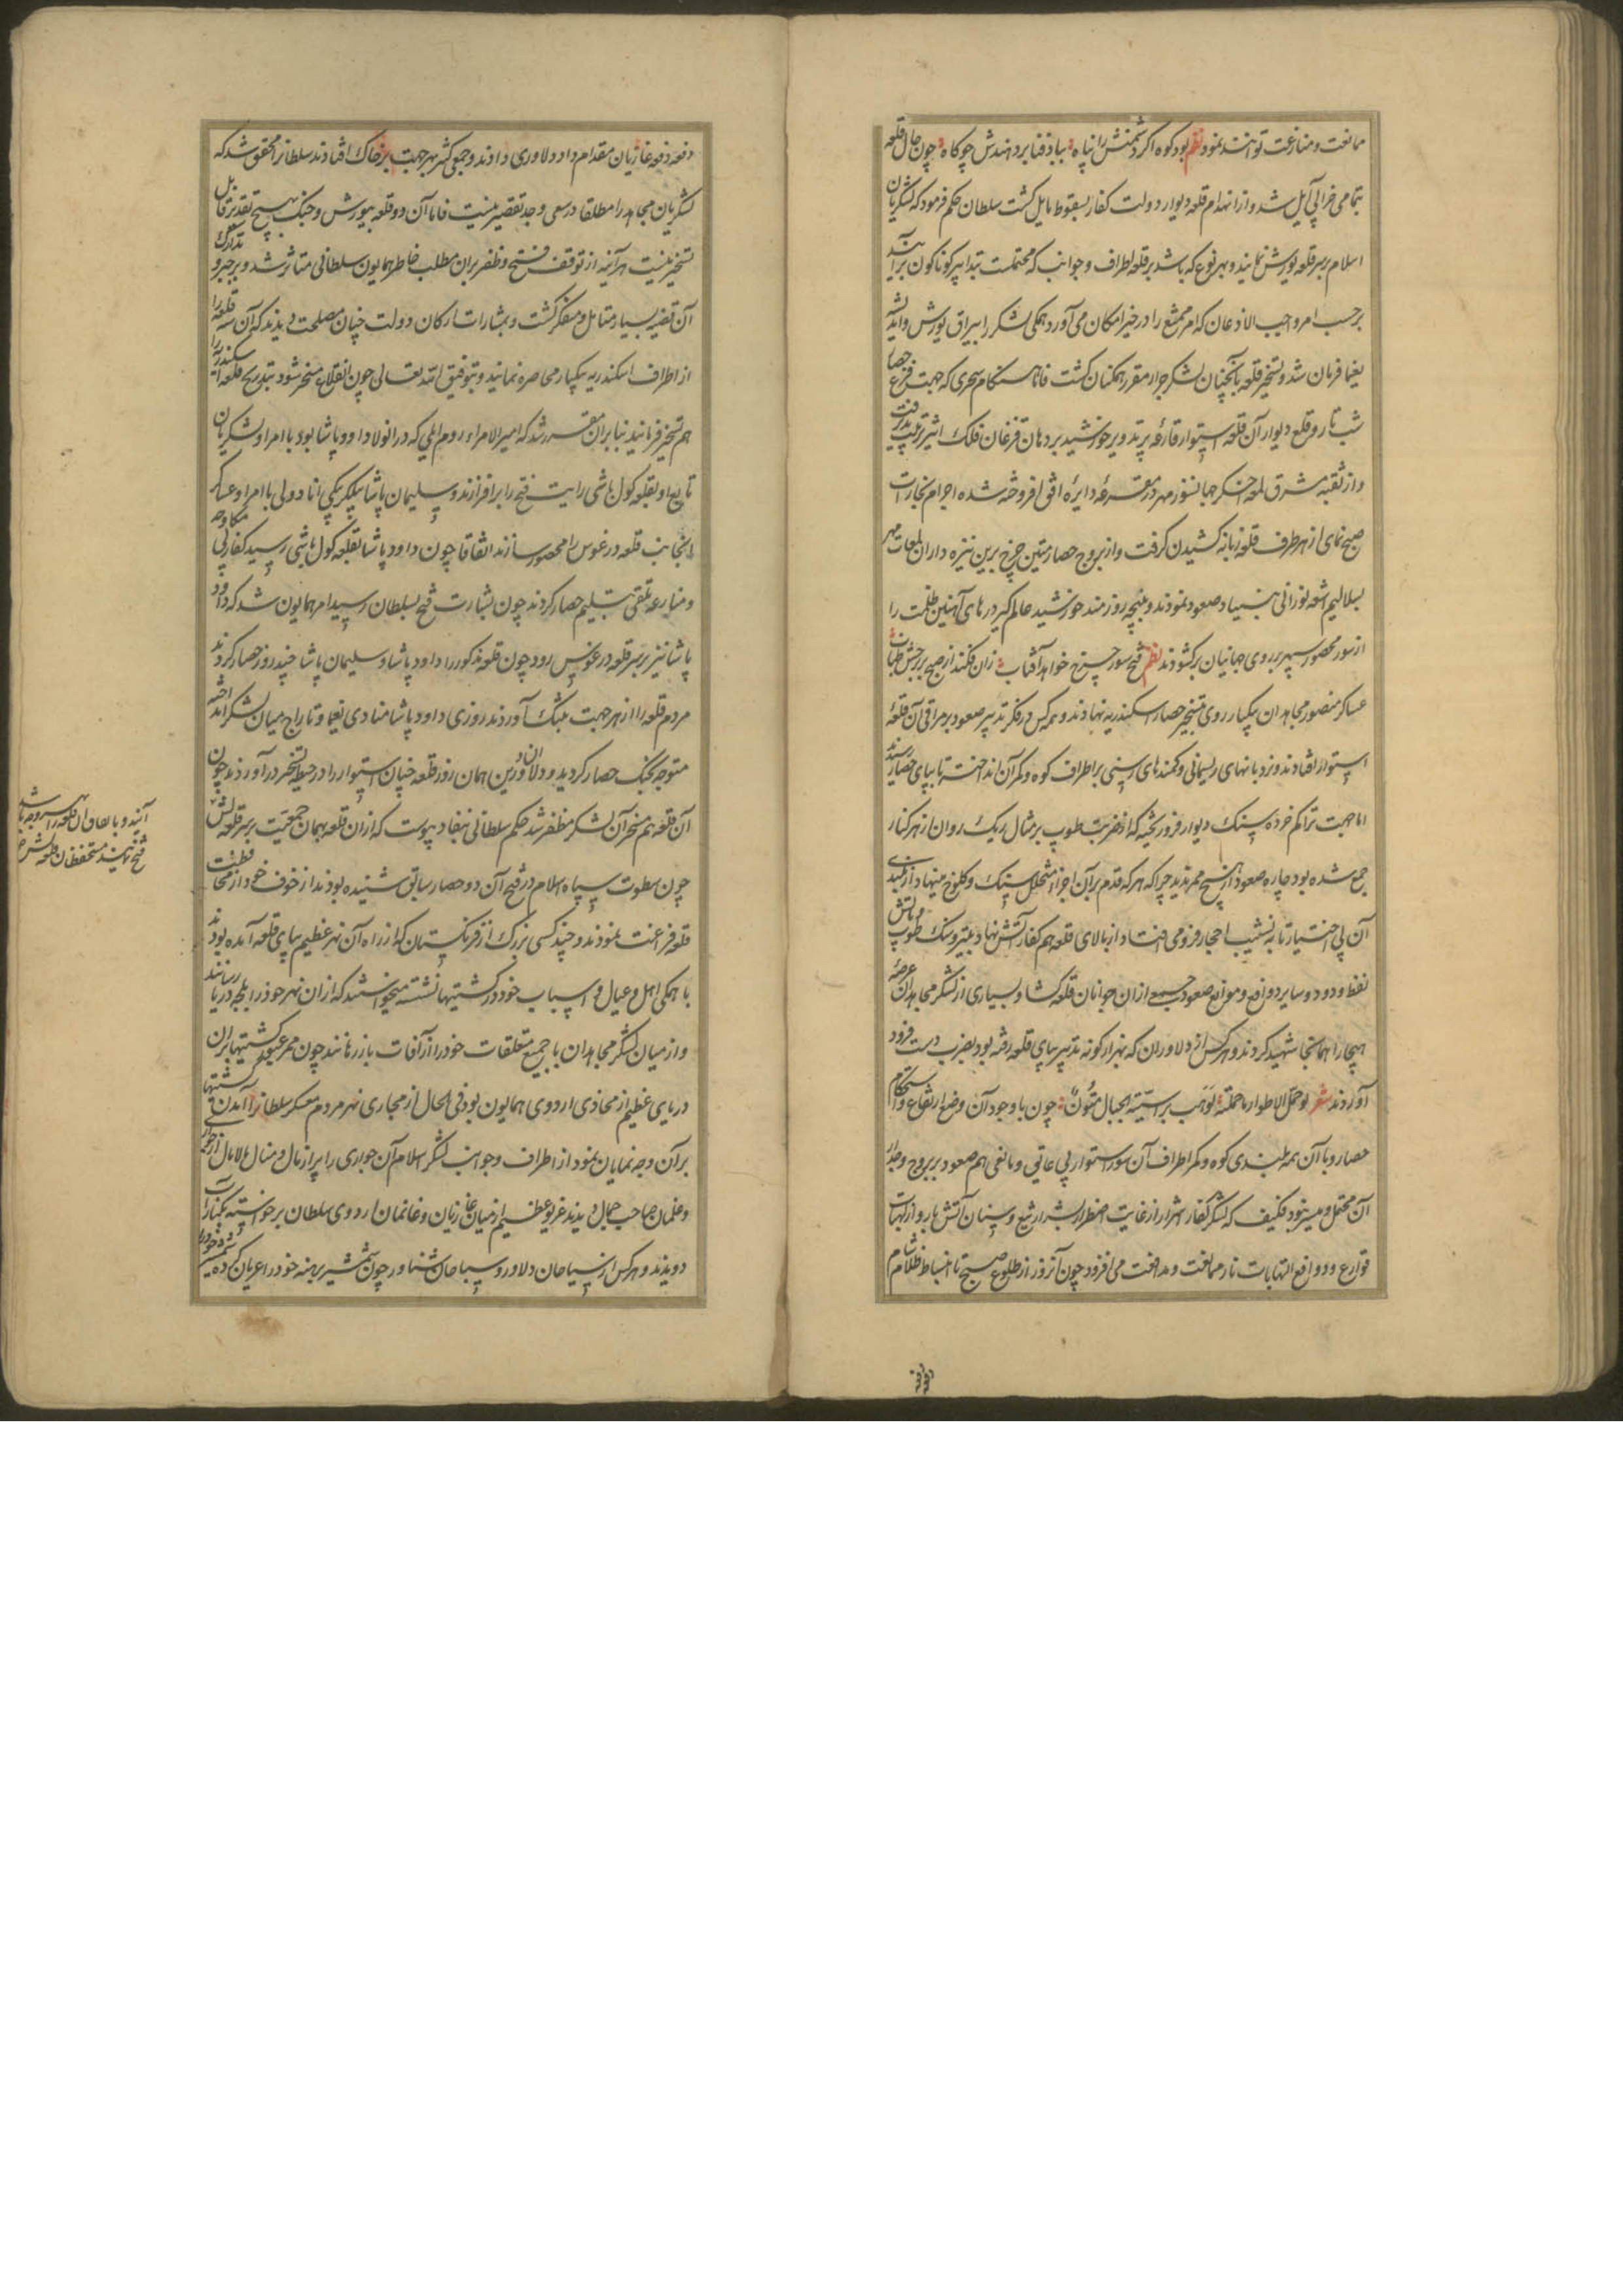 ممانعت و منازعت توانند نمود نظم بود کوه اگر دشمنش را پناه بباد فنا بردهندش چو کاه چون حال قلعه
بتمامی خرابی آیل شد و از انهدام قلعه دیوار دولت کفار بسقوط مایل کشت سلطان حکم فرمود که لشکریان
اسلام بر سر قلعه یورش نمایند و بهر نوع که باشد بر قلعه اطراف و جوانب که محتملست بتدابیر کوناکون برآیند
برحسب امر واجب الاذعان که امر ممتنع را در حیز امکان می آورد همکی لشکر را بیراق یورش و
یغما فرمان شد و تسخیر قلعه بآنچنان لشکر جرار مقرر همکنان کشت فاما هنکام سحری که جهت
شب تار و قلع دیوار آن قلعه استوار قارغه پر تدویر خورشید بر دهان قزغان فلک اثیر
و از ثقبه مشرق لمعه اخکر جهانسوز مهر در دایره افق افروخته شده اجرام بخارات
صبح نمای از هر طرف قلعه زبانه کشیدن کرفت و از بروج حصار متین چرخ برین نیزه داران لمعات مهر
بسلالیم اشعه نورانی صعود نمودند و پنجه روزمند خورشید عالم کیر درهای آهنین ظلمت را
از سور محصور سپهر بر روی جهانیان برکشودند نظم فتح سور چرخ خواهد آفتاب زان فکند از صبح بر
عساکر منصور مجاهدان یکبار روی بتسخیر حصار اسکندریه نهادند و همه کس در فکر تدبیر صعود بر مراقی آن قلعه
استوار افتادند و نردبانهای ریسمانی و کمندهای رسنی بر اطراف کوه و کمر آن انداختند تا بپای حصار رسیدند
اما جهت تراکم خرده سنک دیوار فرو ریخته که از ضربت طوپ بر مثال ریک روان از هر کنار
جمع شده بود چاره صعود از هیچ ممر ندیدند چرا که هر که قدم بر آن اجزاء متخلخل سنک و کلوخ مینهاد از بلندی
آن بی اختیار تا به نشیب احجار فرو می افتاد و از بالای قلعه هم کفار آتش نهاد بتیر و سنک طوپ و آتش
نفط و دود و سایر دوافع و موانع صعود جمعی از آن جوانان قلعه کشا و بسیاری از لشکر مجاهدان عرصه
هیجا را همانجا شهید کردند و هر کس از دلاوران که بهزار کونه تدبیر بپای قلعه رفته بود بضرب دست فرود
آوردند شعر لو حمل الاطواد ما حملته لم تهب براسیة الجبال متون چون با وجود آن وضع ارتفاع و استحکام
حصار و با آن همه بلندی کوه و کمر اطراف آن سور استوار بی عایقی و مانعی هم صعود بر بروج و جدار
آن محتمل و میسر نبود فکیف که لشکر کفار شرار از غایت اضطرار بشرار تیغ و سنان آتش بار و از لهبات
قوارع و دوافع التهابات نار ممانعت و مدافعت می افزود چون آن روز از طلوع صبح تا انبساط ظلام شام
دفعه دفعه غازیان مقدام داد دلاوری دادند و جمعی کثیر بهر جهت بر خاک افتادند سلطانرا محقق شد که
لشکریان مجاهد را مطلقا در سعی و جد تقصیر نیست فاما آن دو قلعه بیورش و جنک بهیچ تقدیر قابل
تسخیر نیست هر آینه از توقف فتح و ظفر بر آن مطلب خاطر همایون سلطانی متاثر شد و بر جبر و تدارک
آن قضیه بسیار متامل و متفکر کشت و بمشارات ارکان دولت چنان مصلحت دیدند که آن سه قلعه را
از اطراف اسکندریه یکبار محاصره نمایند و بتوفیق الله تعالی چون آن قلاع مسخر شود بتدریج قلعه اسکندریه را
هم تسخیر فرمایند بنابرآن مقرر شد که امیر الامراء روم ایلی که در آنولا داود پاشا بود با امرا و لشکریان
تابع او بقلعه کول باشی رایت فتح را برافرازند و سلیمان پاشا بیکلربیکی انادولی با امرا و عساکر
آنجانب قلعه درغوس را محصور سازند اتفاقا چون داود پاشا بقلعه کول باشی رسید کفار بی مکاوحه
و منازعه تلقی بتسلیم حصار کردند چون بشارت فتح بسلطان رسید امر همایون شد که داود
پاشا نیز بر سر قلعه درغوس رود چون قلعه مذکور را داود پاشا و سلیمان پاشا چند روز حصار کردند
مردم قلعه را از هر جهت بتنک آوردند روزی داود پاشا منادی یغما و تاراج میان لشکر انداخته
متوجه جنک حصار کردید و دلاوران دین همان روز قلعه چنان استوار را در حیطه تسخیر درآوردند چون
آن قلعه هم مسخر آن لشکر مظفر شد حکم سلطانی بنفاد پیوست که از آن قلعه بهمان جمعیت بر سر قلعه لش
آیند و باتفاق آن قلعه را بهر وجه باشد
فتح نمایند مستحفظان قلعه لش
چون سطوت سپاه اسلام در فتح آن دو حصار سابق شنیده بودند از خوف خود از محافظت
قلعه فراغت نمودند و چند کسی بزرک از فرنکستان که از راه آن نهر عظیم بپای قلعه آمده بودند
با همکی اهل و عیال و اسباب خود در کشتیها نشسته میخواستند که از آن نهر خود را بلجه دریا رسانند
و از میان لشکر مجاهدان با جمیع متعلقات خود را از آفات باز رهانند چون ممر عبور کشتیها بر آن
دریای عظیم از محاذی اردوی همایون بود فی الحال از مجاری نهر مردم معسکر سلطانرا آمدن کشتیها
بر آن وجه نمایان نمود از اطراف و جوانب لشکر اسلام آن جواری را پر از مال و منال مالامال از جواری
و غلمان صاحب جمال دیدند غریو عظیم از میان غازیان و غانمان اردوی سلطان برخواسته بکنار آب
دویدند و هر کس از سیاحان دلاور و سباحان شناور چون شمشیر برهنه خود را عریان کرده